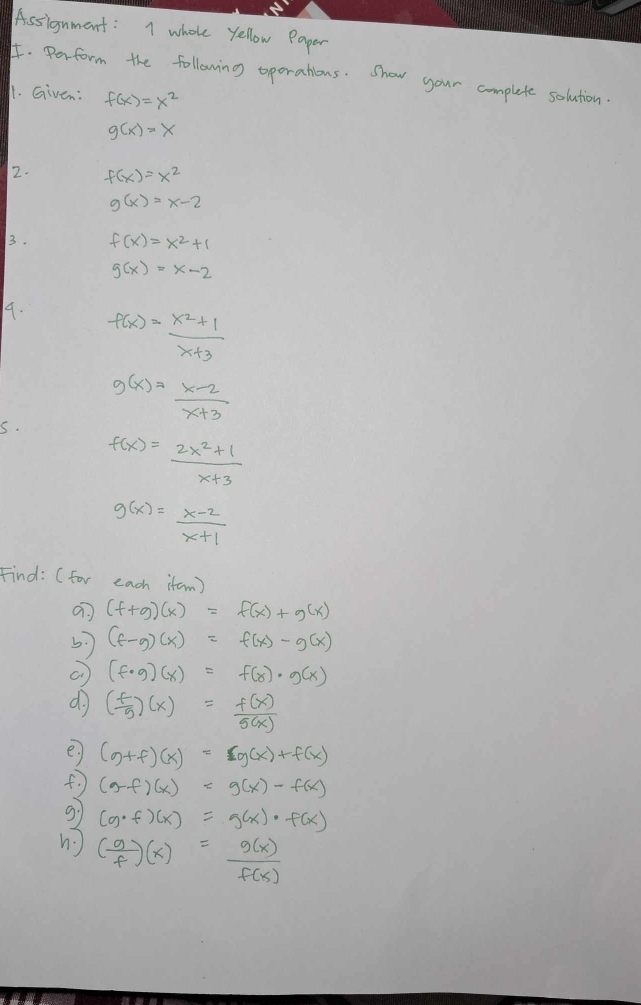 Assignment: 1 whole Yellow Paper
I. Perform the following operations. Show your complete solution.
1. Given: f(x) = x²
g(x) = x
2. f(x) = x²
g(x) = x-2
3. f(x) = x²+1
g(x) = x-2
4. f(x) = x²+1
x+3
g(x) = x-2
x+3
5. f(x) = 2x²+1
x+3
g(x) = x-2
x+1
Find: (for each item)
a.) (f+g)(x) = f(x) + g(x)
b.) (f-g)(x) = f(x) - g(x)
c.) (f•g)(x) = f(x) • g(x)
d.) (f/g)(x) = f(x)
g(x)
e.) (g+f)(x) = g(x)+f(x)
f.) (g-f)(x) = g(x) - f(x)
g.) (g•f)(x) = g(x) • f(x)
h.) (g/f)(x) = g(x)
f(x)